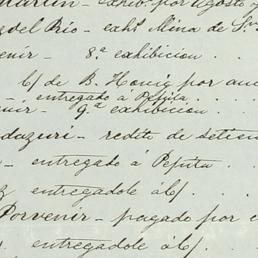 martin - exhibo. por agosto
del Rio - exhn. Mina de Sn.
venir - 8ª exhibicion . .
C/ de B. Honig por
- entregado à Pepita . . .
nir - 9ª exhibicion . .
dazuri - redito de setiem
- entregado à Pepita . .
entregadole à C/ . .
Porvenir - pagado por
entregadole à C/ . .